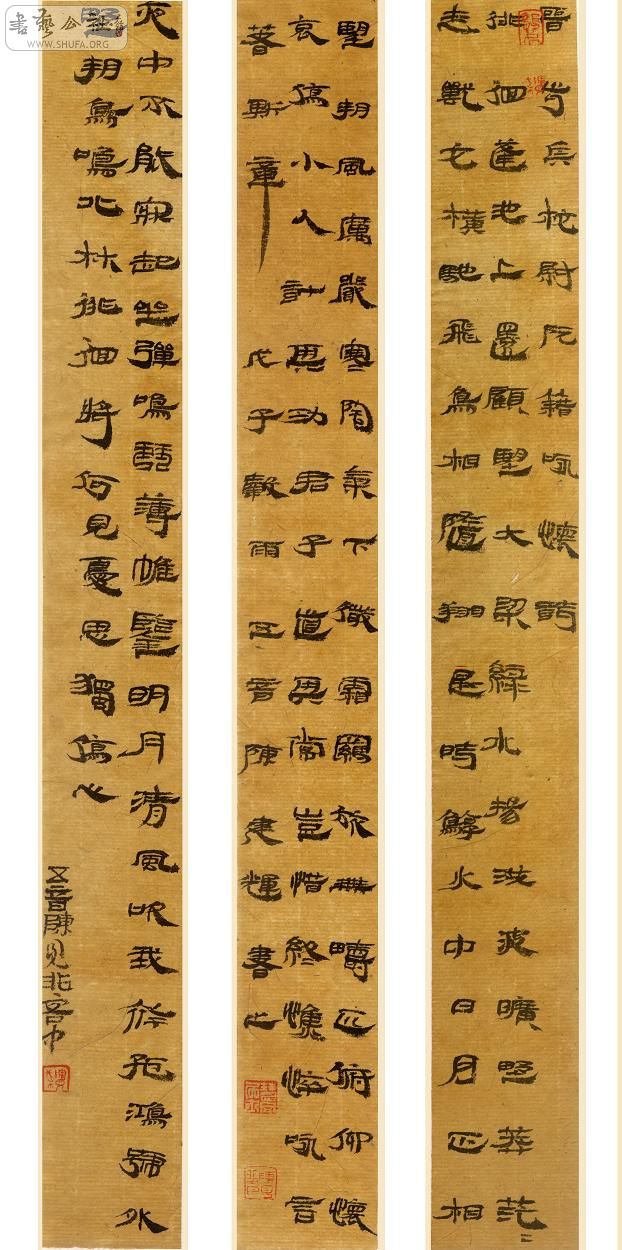 晉步兵校尉阮籍咏懷詩
徘徊蓬池上還顧望大梁綠水揚洪波曠野莽茫〻
走獸交橫馳飛鳥相隨翔是時鶉火中日月正相
望朔風厲嚴寒陰氣下微霜羈旅無疇匹俯仰懷
哀傷小人計其功君子道其常豈惜終憔悴咏言
著斯章 戊子穀雨五音陳建輝書之
夜中不能寐起坐彈鳴琴薄帷鑒明月清風吹我衿孤鴻號外
野朔鳥鳴北林徘徊將何見憂思獨傷心
五音陳見非
書藝公社
WWW.SHUFA.ORG